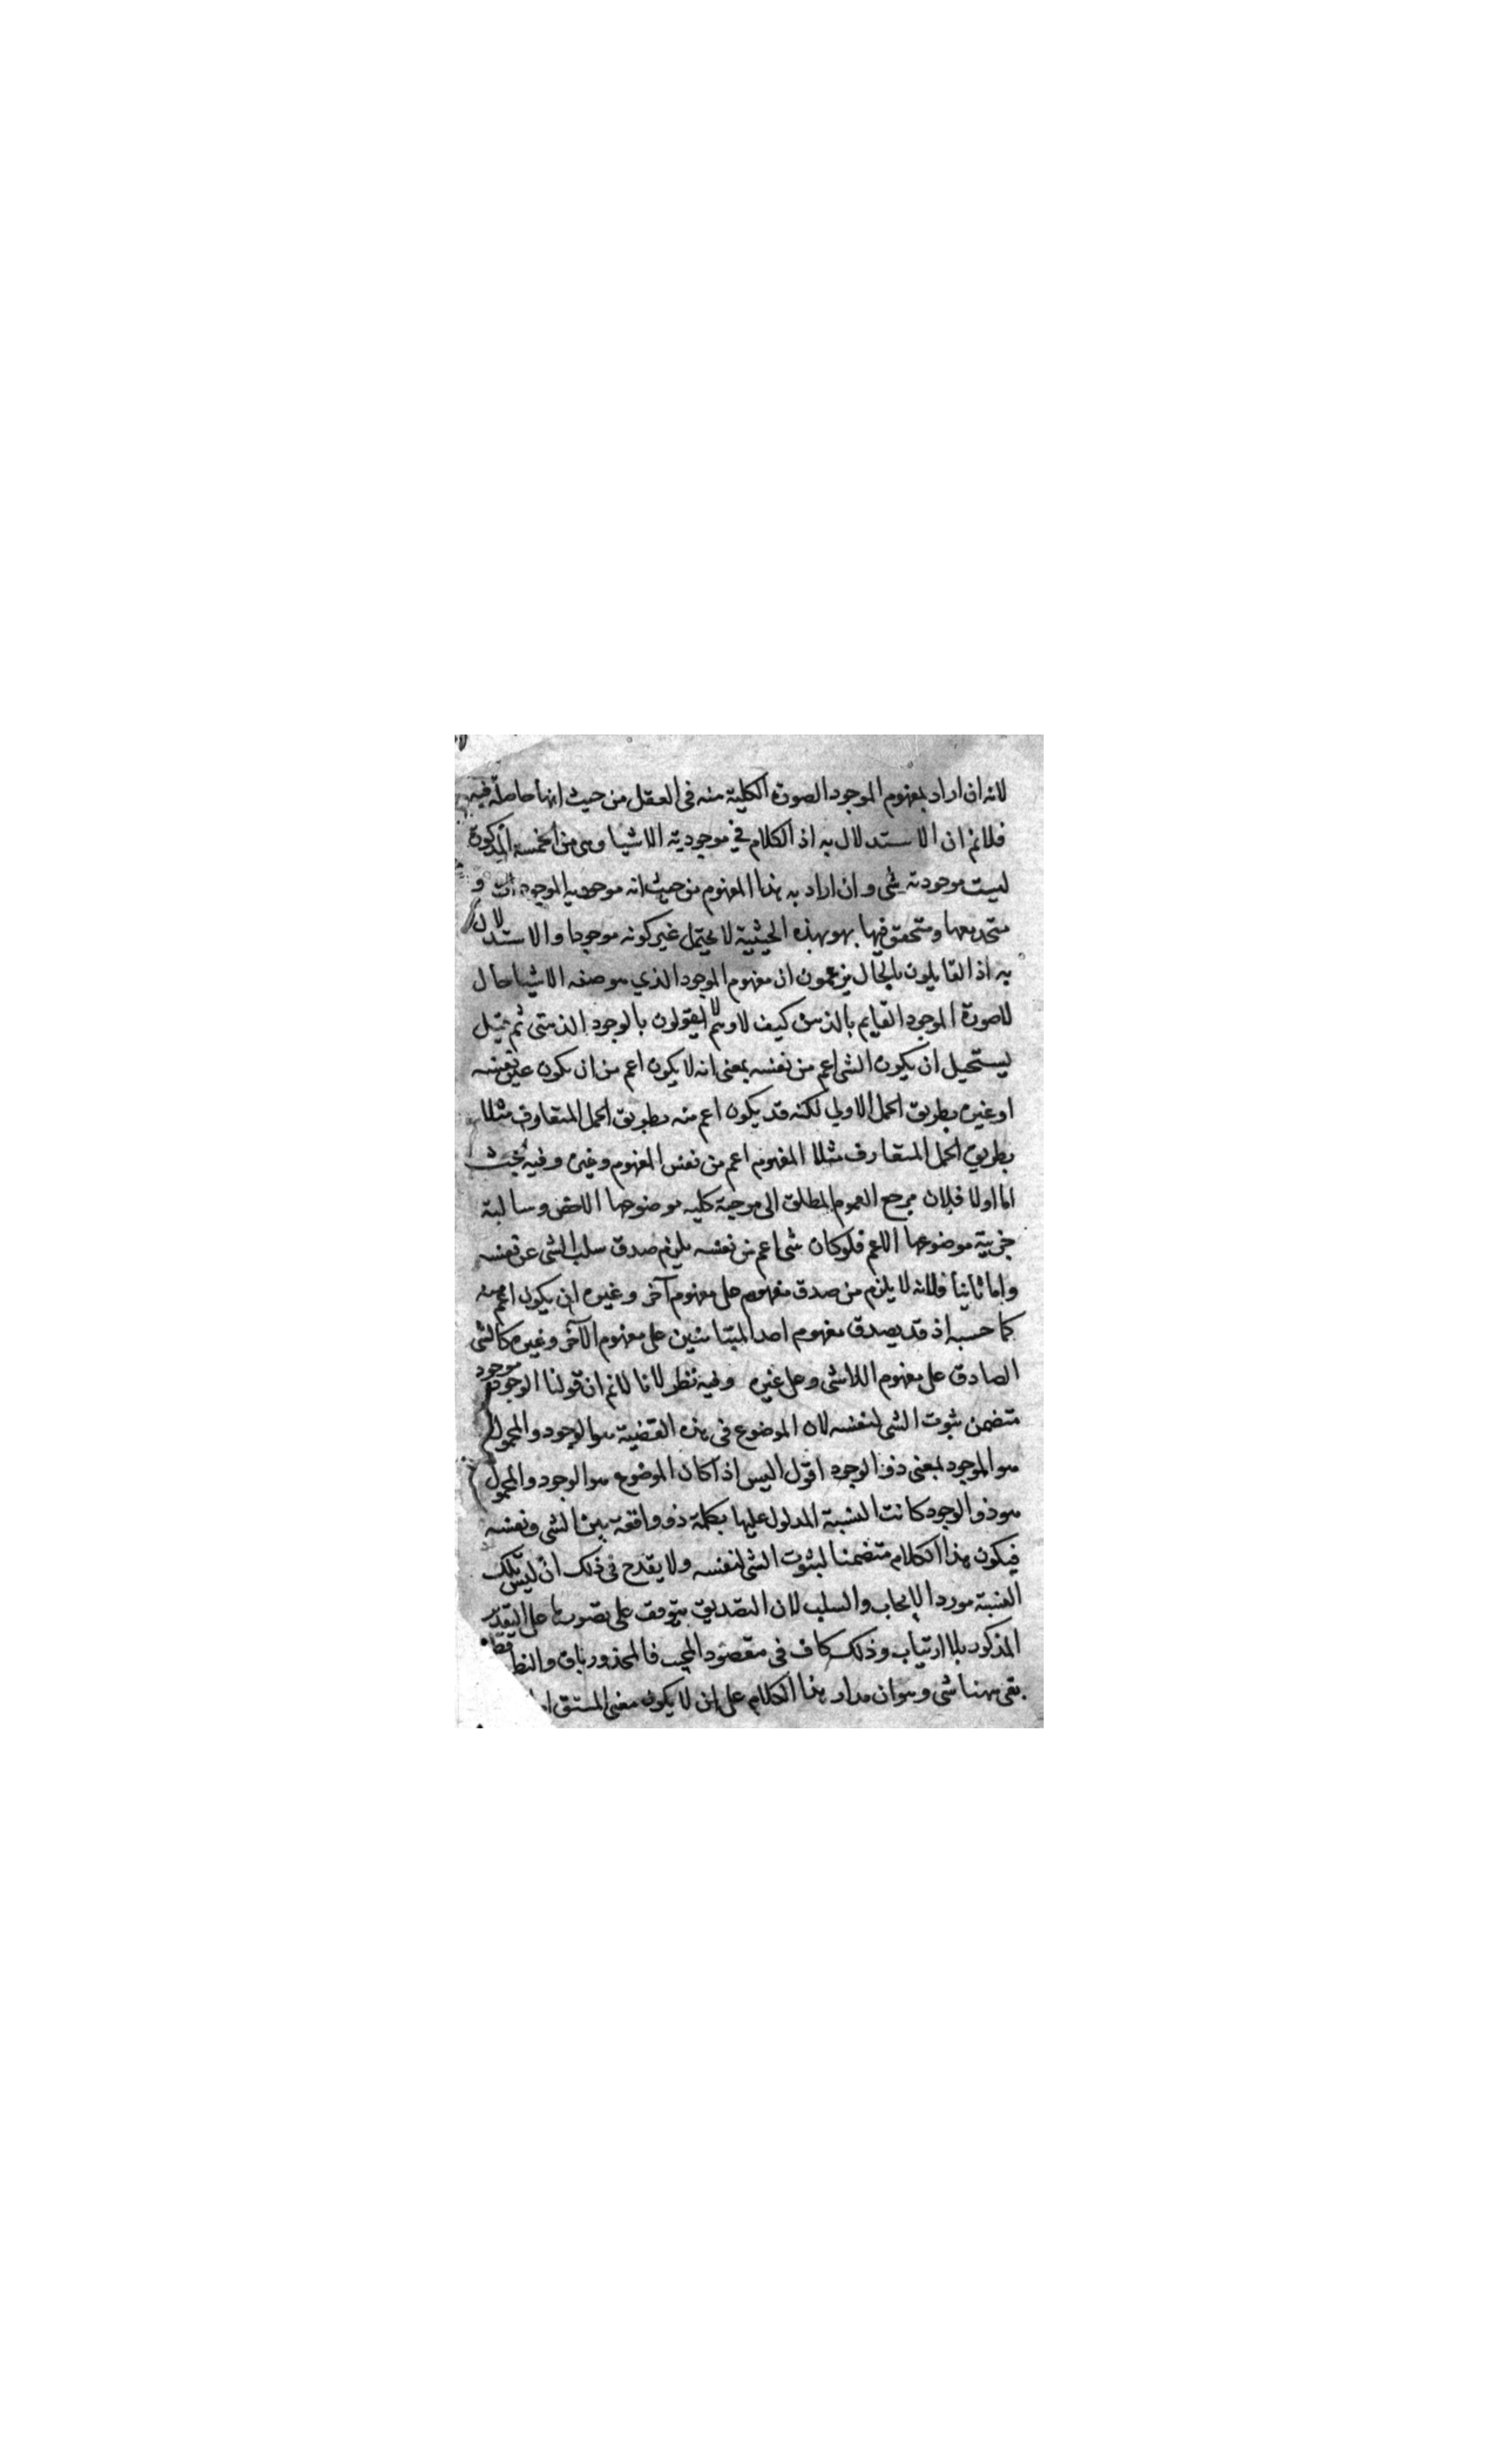 لانه ان اراد بمفهوم الموجود الصورة الكلية منه فى العقل من حيث انها حاصلة فيه
فلانم ان الاستدلال به اذ الكلام في موجودية الاشيا وهى من الخمسة المذكورة
ليست موجودية شى وان اراد به هذا المفهوم من حيث انه موجودية الموجودات و
متحد معها ومتحقق فيها فهو بهذه الحيثية لا يحتمل غير كونه موجودا والاستدلال
به اذ القايلون بالحال يزعمون ان مفهوم الموجود الذي هو صفه الاشيا حال
لا صورة الموجود القايم بالذهن كيف لا وهم لا يقولون بالوجود الذهنى ثم قيل
يستحيل ان يكون الشى اعم من نفسه بمعنى انه لا يكون اعم من ان يكون عين نفسه
او غيره بطريق الحمل الاولي لكنه قد يكون اعم منه بطريق الحمل المتعارف مثلا
بطريق الحمل المتعارف مثلا المفهوم اعم من نفس المفهوم وغيره وفيه بحث
اما اولا فلان مرجع العموم المطلق الى موجبة كليه موضوعها الاخص وسالبة
جزيية موضوعها الاعم فلو كان شى اعم من نفسه يلزم صدق سلب الشى عن نفسه
واما ثانيا فلانه لا يلزم من صدق مفهوم على مفهوم آخر وغيره ان يكون اعم منه
كما حسبه اذ قد يصدق مفهوم احد المتباينين على مفهوم الآخر وغيره كالشى
الصادق على مفهوم اللاشى وعلى غيره وفيه نظر لانا لانم ان قولنا الوجود موجود
متضمن ثبوت الشى لنفسه لان الموضوع فى هذه القضية هو الوجود والمحمول
هو الموجود بمعنى ذو الوجود اقول اليس اذا كان الموضوع هو الوجود والمحمول
هو ذو الوجود كانت النسبة المدلول عليها بكلمة ذو واقعة بين الشى ونفسه
فيكون هذا الكلام متضمنا لثبوت الشى لنفسه ولا يقدح فى ذلك ان ليس تلك
النسبة مورد الايجاب والسلب لان التصديق يتوقف على تصورها على التقدير
المذكور بلا ارتياب وذلك كاف فى مقصود المجيب فالمحذور باق والنظر
بقى ههنا شى وهو ان مدار هذا الكلام على ان لا يكون معنى المشتق